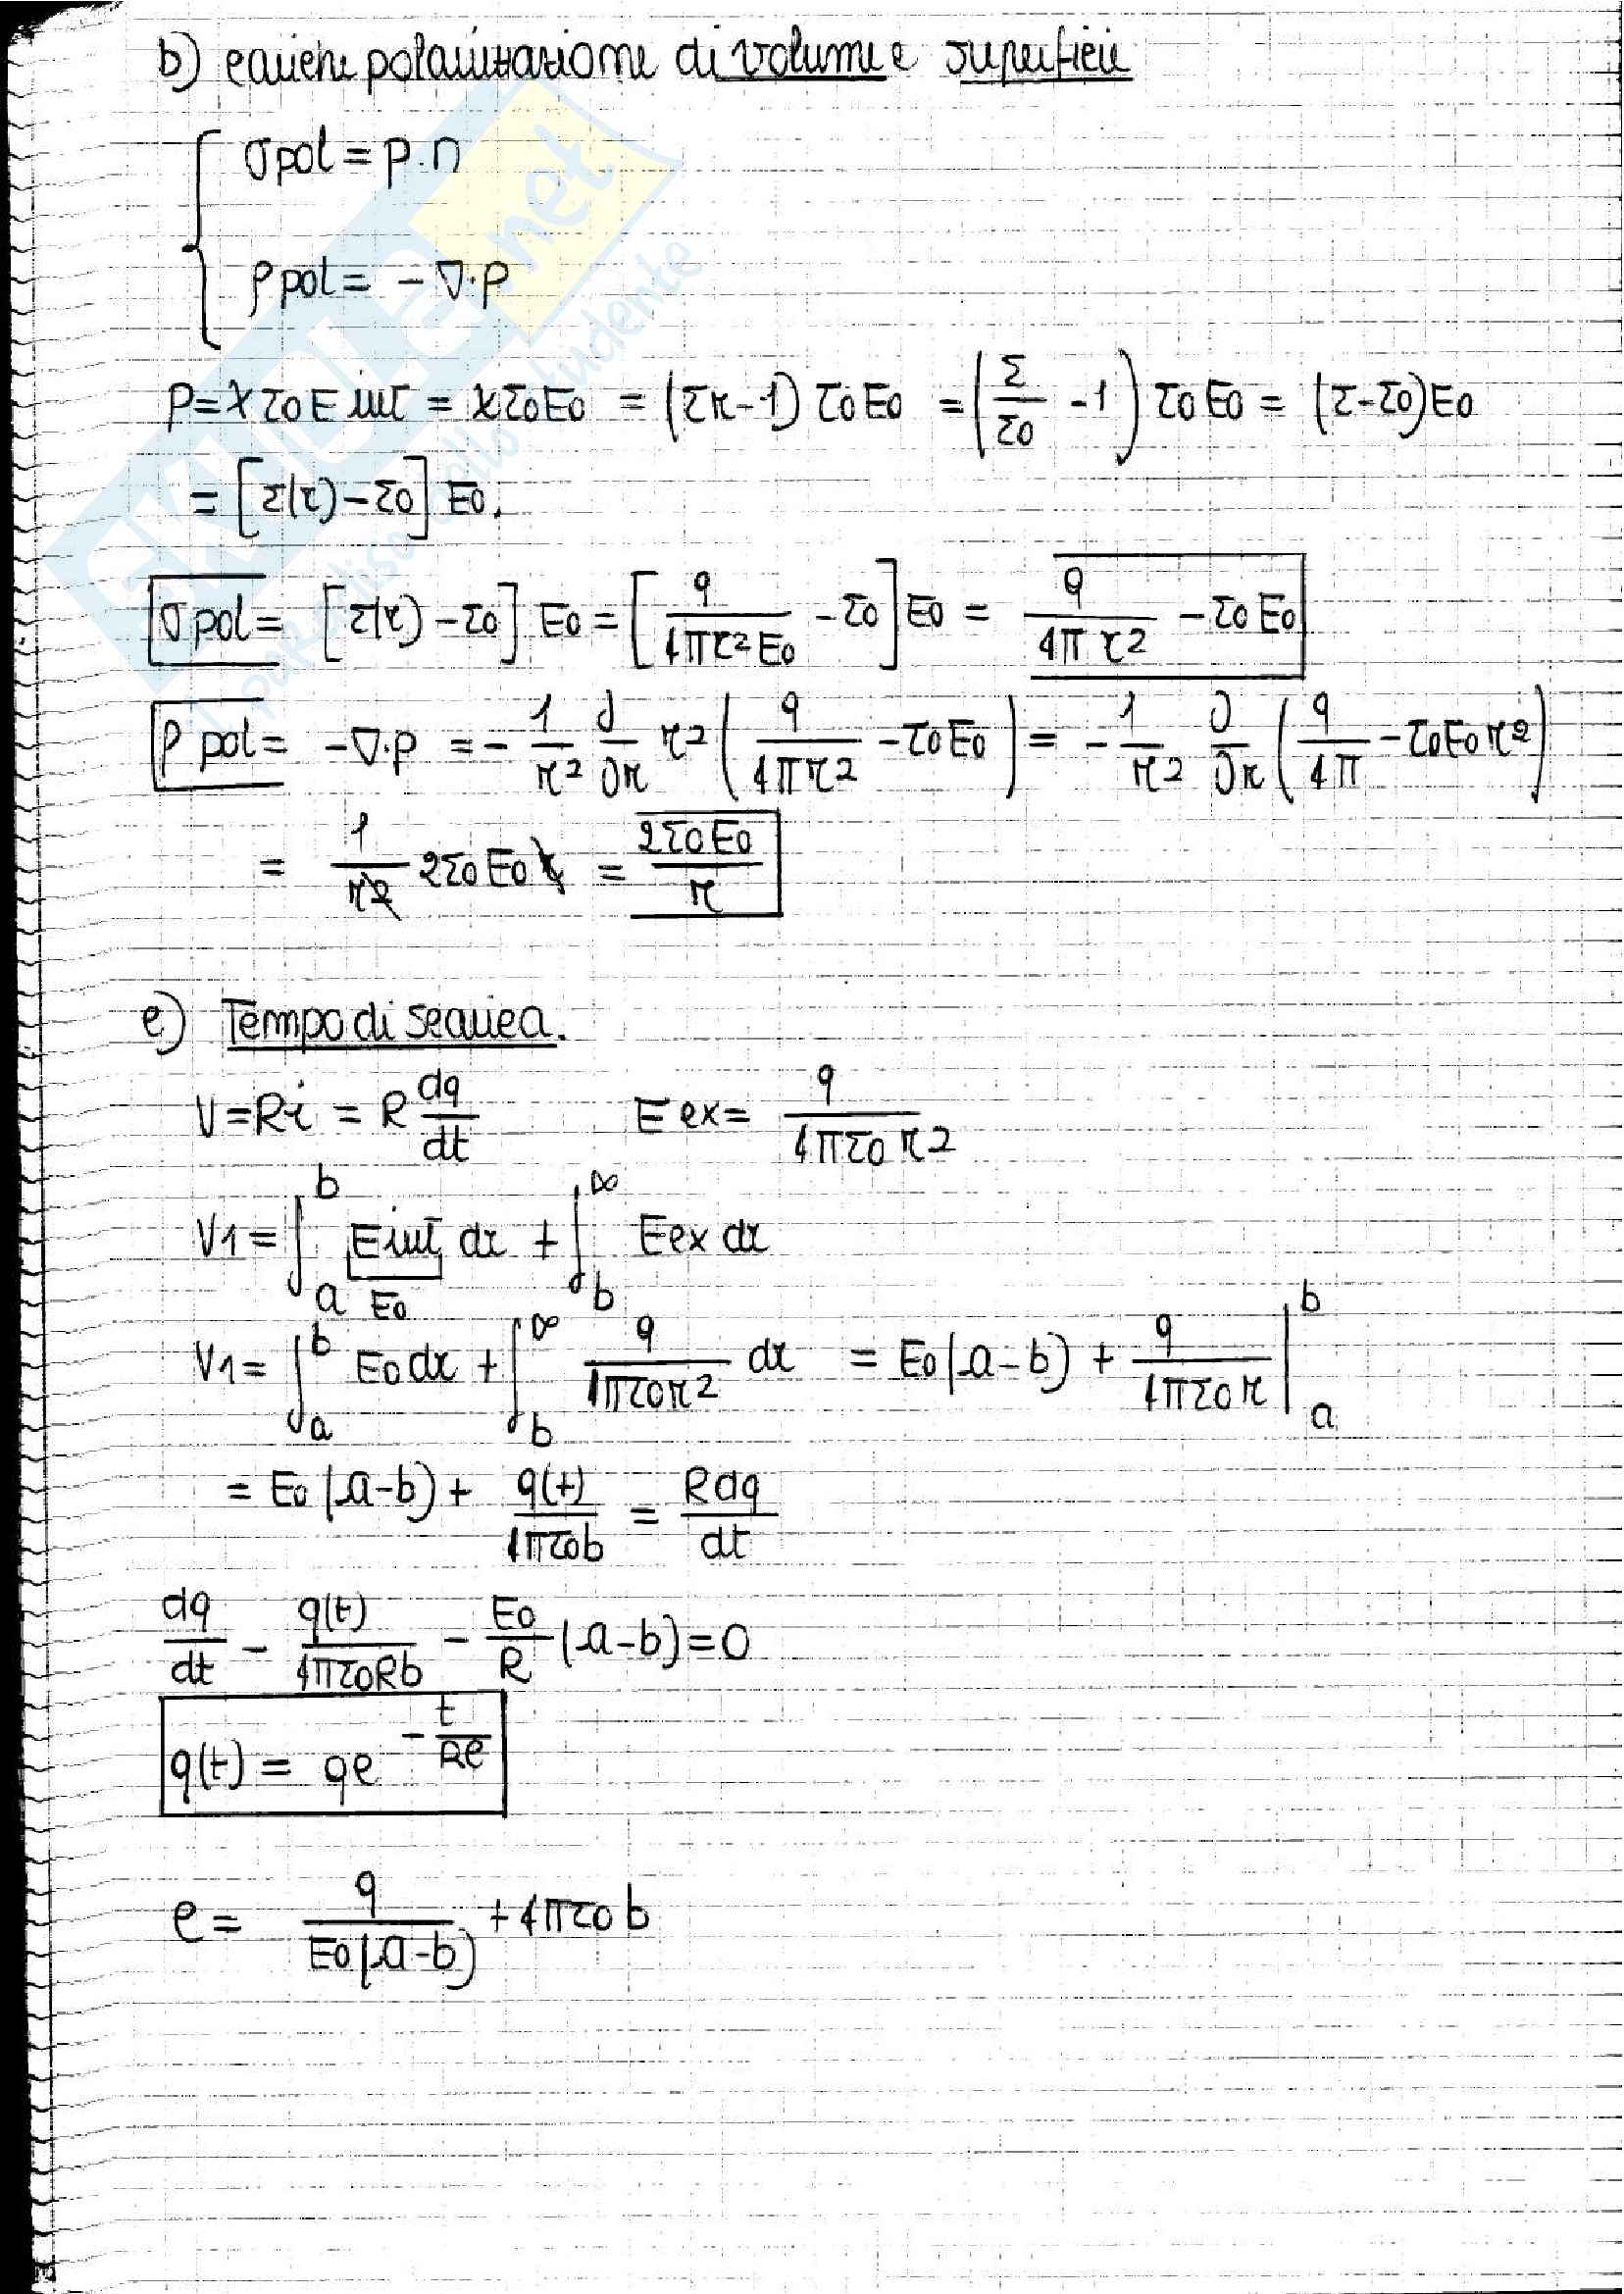 b) cariche polarizzazione di volume e superficie
σpol = P·n
ρpol = -∇·P
P = χ ε0 E int = χ ε0 E0 = (εr-1) ε0 E0 = (ε/ε0 - 1) ε0 E0 = (ε-ε0) E0
= [ε(r) - ε0] E0.
σpol = [ε(r) - ε0] E0 = [q/4πr²E0 - ε0] E0 = q/4πr² - ε0 E0
ρpol = -∇·P = - 1/r² ∂/∂r r² (q/4πr² - ε0E0) = - 1/r² ∂/∂r (q/4π - ε0E0r²)
= 1/r² 2ε0E0 r = 2ε0E0/r
c) Tempo di scarica.
V = Ri = R dq/dt    Eex = q/4πε0r²
V1 = ∫ₐᵇ Eint dr + ∫_b^∞ Eex dr
E0
V1 = ∫ₐᵇ E0 dr + ∫_b^∞ q/4πε0r² dr = E0(a-b) + q/4πε0r |ₐᵇ
= E0(a-b) + q(t)/4πε0b = Rdq/dt
dq/dt - q(t)/4πε0Rb - E0/R (a-b) = 0
q(t) = qe^(-t/Rc)
c = q/E0(a-b) + 4πε0b
SKUOLA.net
il paradiso dello studente